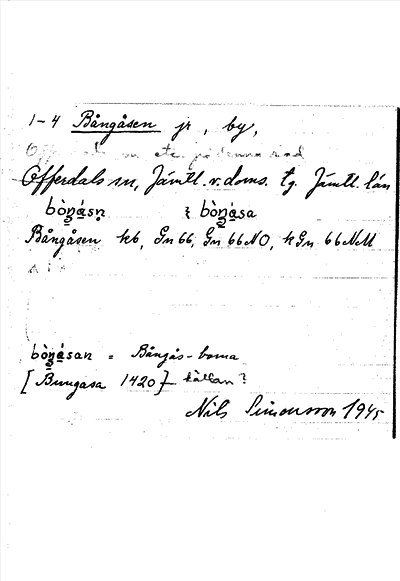 1-4 Bångåsen jr, by,
Offerdals sn, Jämtl. v. doms. tg. Jämtl. län
bòŋåsn ⁊ bòŋåsa
Bångåsen kb, Gn 66, Gn 66 NO, hGn 66 NM
bòŋåsan = Bångås-borna
[Bungasa 1420] källan?
Nils Simonsson 1945